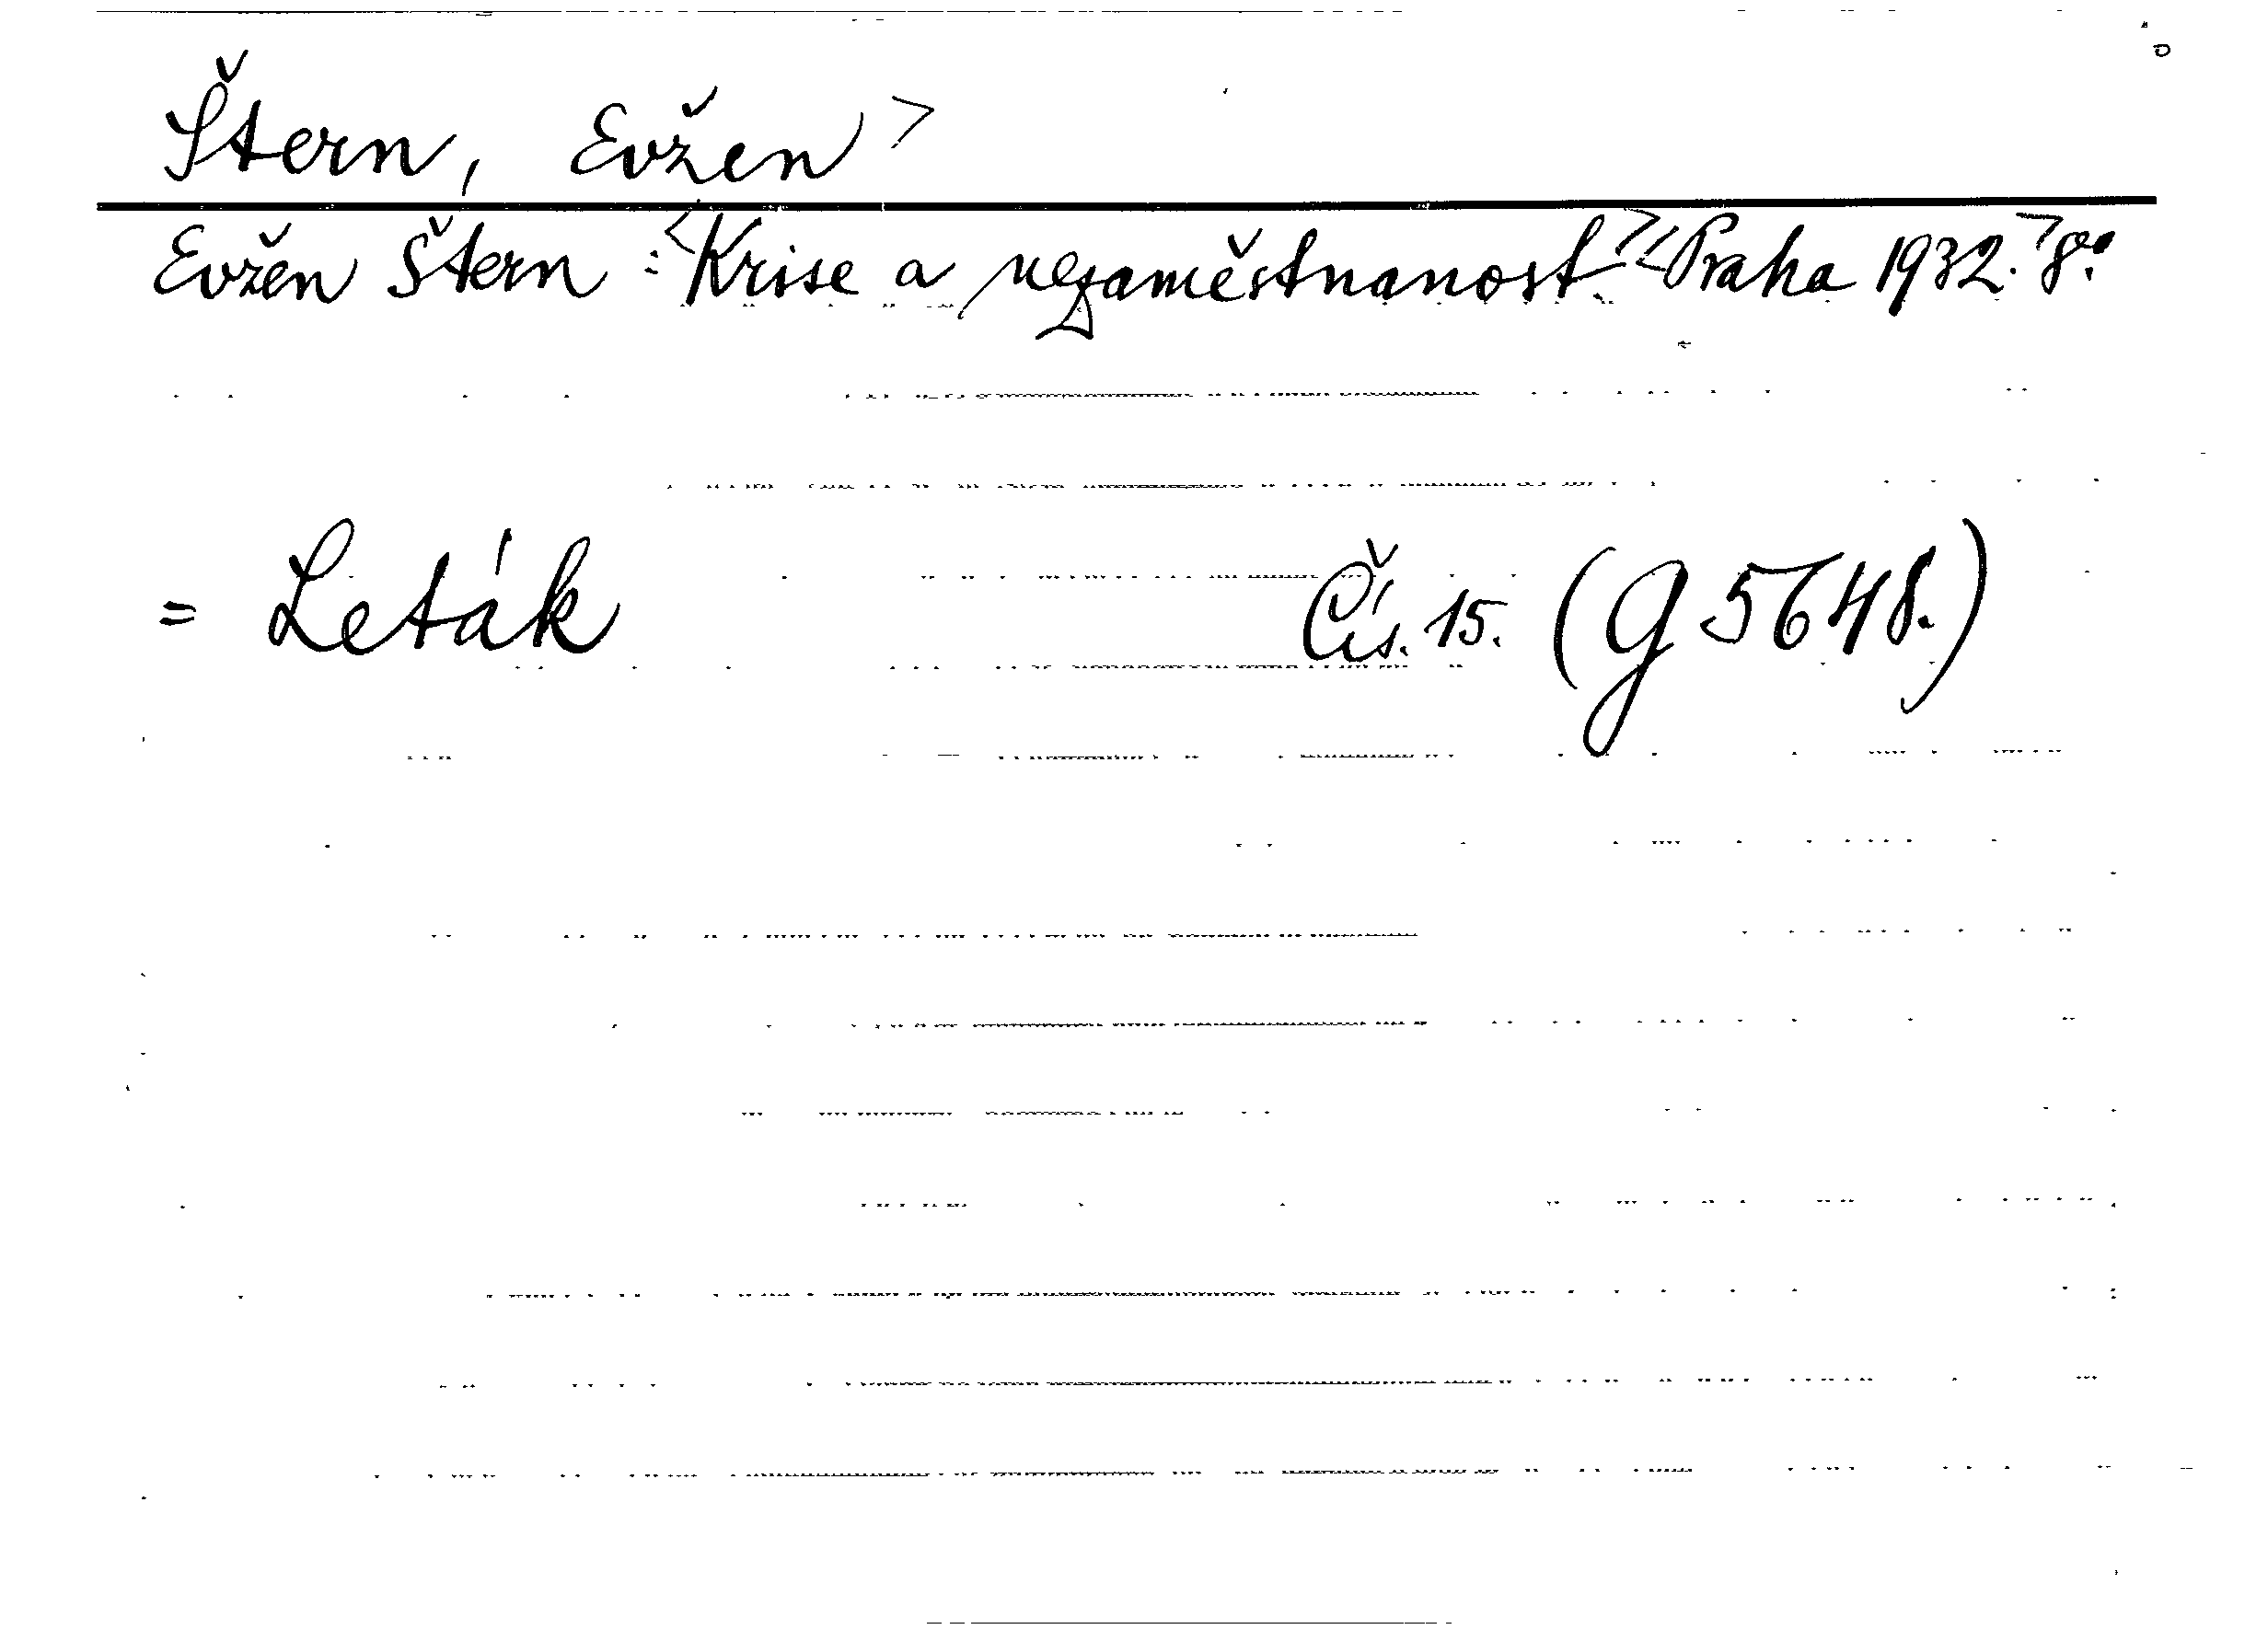 Štern, Evžen>
Evžen Štern: <Krise a nezaměstnanost.> <Praha 1932.> 8o.
= Leták Čís. 15. (G 5648.)